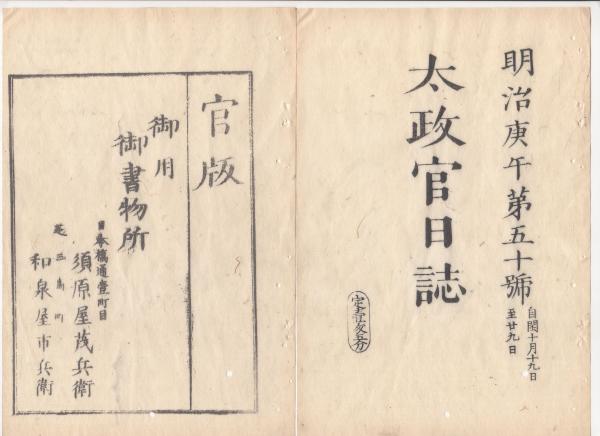 明治庚午第五十號
自閏十月十九日
至廿九日
太政官日誌
官版
御用
御書物所
日本橋通壹町目
須原屋茂兵衛
芝三島町
和泉屋市兵衛